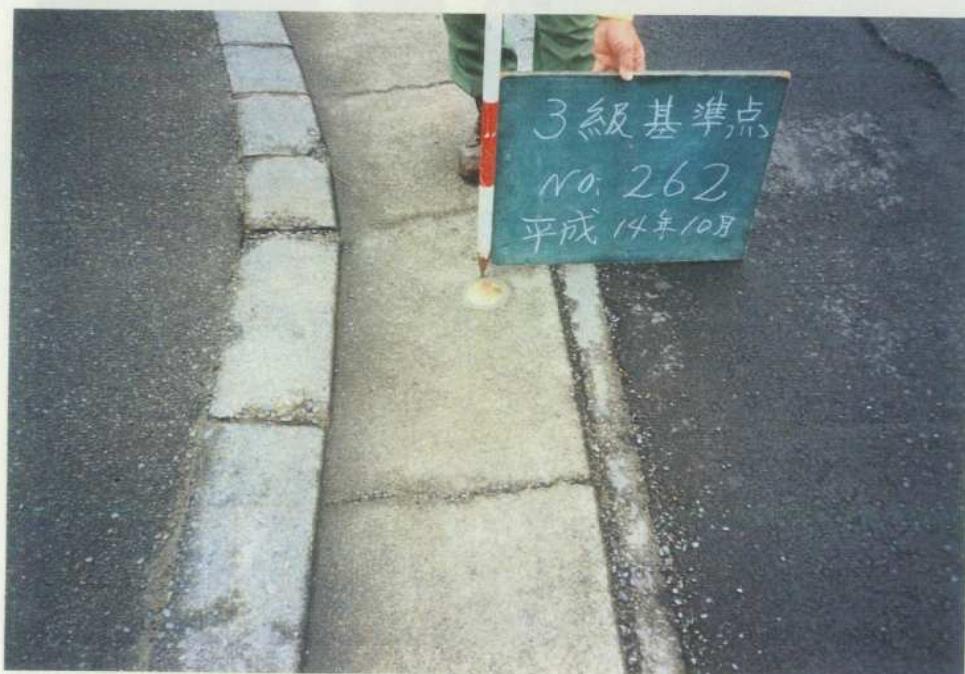 3級基準点
NO. 262
平成14年10月